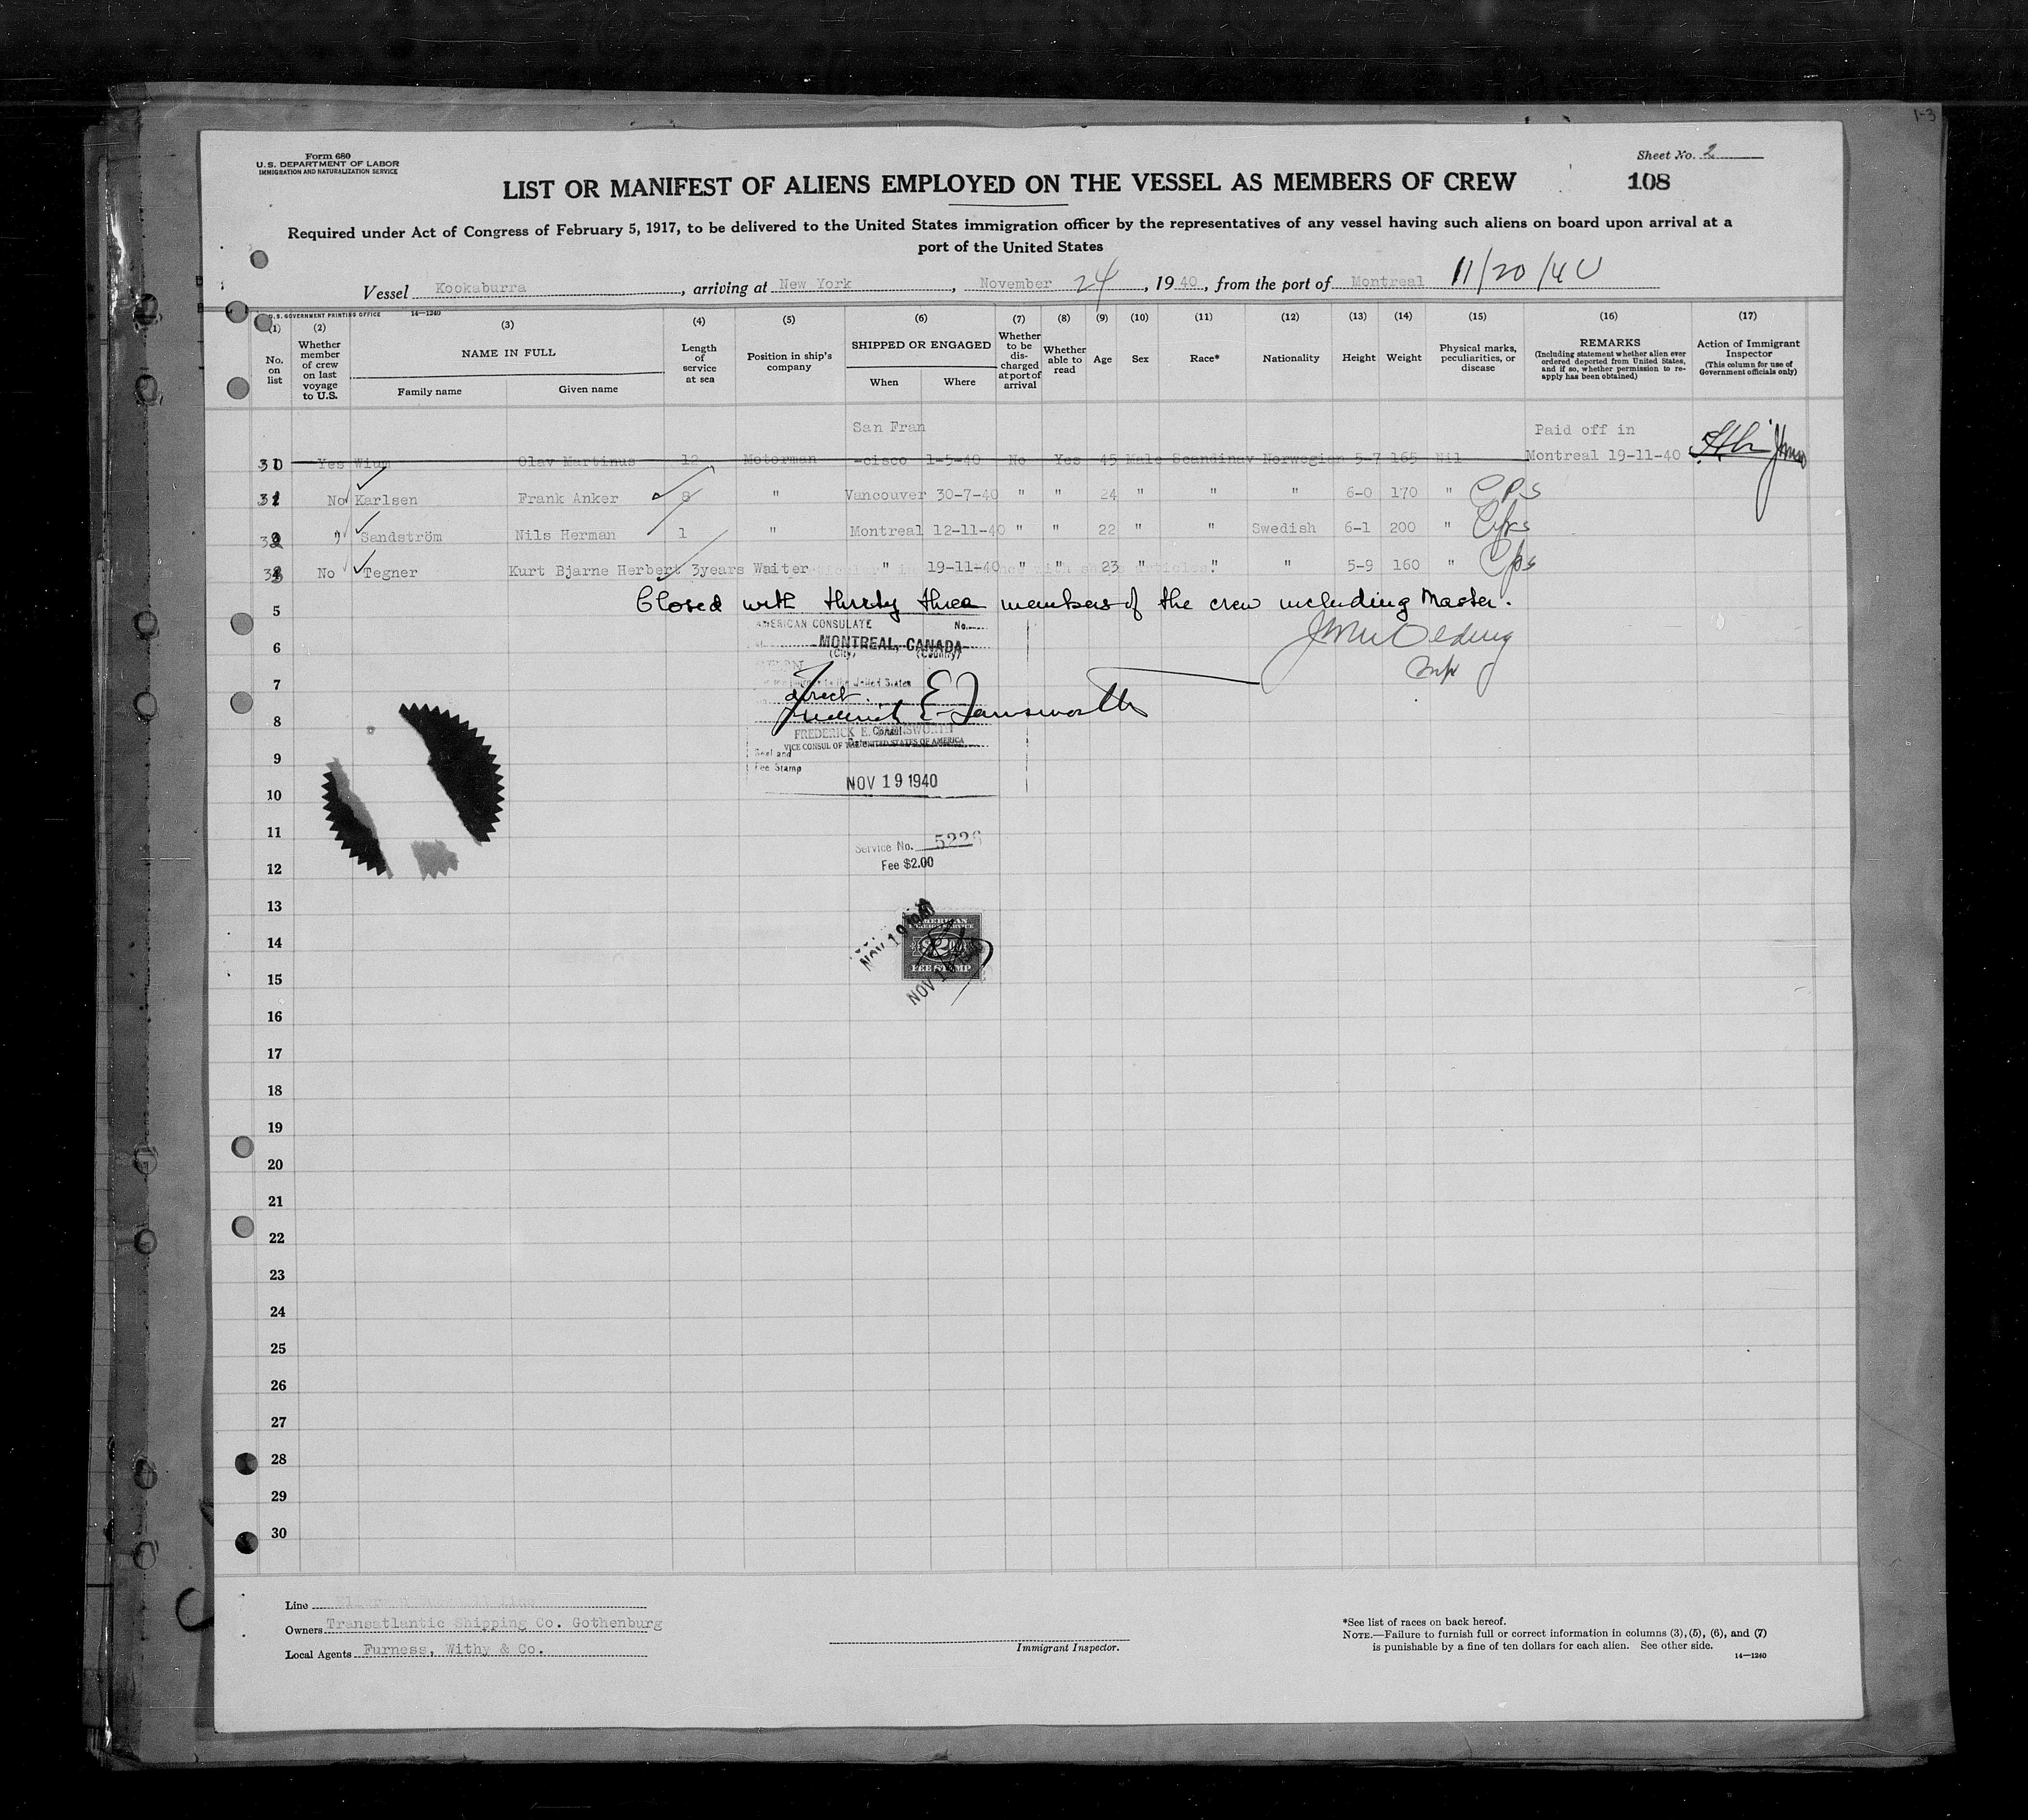 1-3
Form 680
U. S. DEPARTMENT OF LABOR
IMMIGRATION AND NATURALIZATION SERVICE
Sheet No. 2
LIST OR MANIFEST OF ALIENS EMPLOYED ON THE VESSEL AS MEMBERS OF CREW
108
Required under Act of Congress of February 5, 1917, to be delivered to the United States immigration officer by the representatives of any vessel having such aliens on board upon arrival at a
port of the United States
Vessel Kookaburra, arriving at New York, November 24, 1940, from the port of Montreal 11/20/40
U. S. GOVERNMENT PRINTING OFFICE 14—1240
(1) No. on list
(2) Whether member of crew on last voyage to U.S.
(3) NAME IN FULL
Family name Given name
(4) Length of service at sea
(5) Position in ship's company
(6) SHIPPED OR ENGAGED
When Where
(7) Whether to be discharged at port of arrival
(8) Whether able to read
(9) Age
(10) Sex
(11) Race*
(12) Nationality
(13) Height
(14) Weight
(15) Physical marks, peculiarities, or disease
(16) REMARKS
(Including statement whether alien ever ordered deported from United States, and if so, whether permission to reapply has been obtained)
(17) Action of Immigrant Inspector
(This column for use of Government officials only)
San Fran Paid off in
30 Yes Wium Olav Martinus 12 Motorman -cisco 1-5-40 No Yes 45 Male Scandinav Norwegian 5-7 165 Nil Montreal 19-11-40
31 No Karlsen Frank Anker 8 " Vancouver 30-7-40 " " 24 " " " 6-0 170 " Cps
32 " Sandström Nils Herman 1 " Montreal 12-11-40 " " 22 " " Swedish 6-1 200 " Cps
33 No Tegner Kurt Bjarne Herbert 3years Waiter " 19-11-40 " " 23 " " " 5-9 160 " Cps
5 Closed with thirty three members of the crew including Master.
AMERICAN CONSULATE No.
6 MONTREAL, CANADA
(City) (Country)
7
direct
8 Frederick E. Farnsworth
FREDERICK E. FARNSWORTH
Consul
VICE CONSUL OF THE UNITED STATES OF AMERICA
9 Seal and
Fee Stamp
NOV 19 1940
10
11
Service No. 5226
Fee $2.00
12
13
NOV 19 1940
AMERICAN
FOREIGN SERVICE
14
FEE STAMP
NOV 19
15
16
17
18
19
20
21
22
23
24
25
26
27
28
29
30
Line
Owners Transatlantic Shipping Co. Gothenburg
Local Agents Furness, Withy & Co.
Immigrant Inspector.
*See list of races on back hereof.
NOTE.—Failure to furnish full or correct information in columns (3), (5), (6), and (7)
is punishable by a fine of ten dollars for each alien. See other side.
14—1240